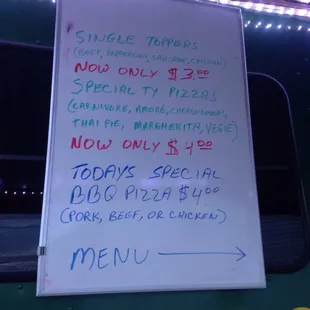 SINGLE TOPPERS
(BEEF, PEPPERONI, SAUSAGE, CHICKEN)
NOW ONLY $3.00
SPECIALTY PIZZAS
(CARNIVORE, AMORE, CHEESEBURGER,
THAI PIE, MARGHERITA, VEGIE)
NOW ONLY $4.00
TODAYS SPECIAL
BBQ PIZZA $4.00
(PORK, BEEF, OR CHICKEN)
MENU